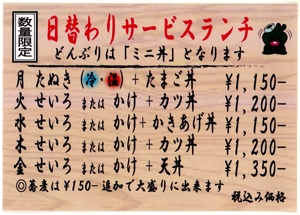 数量限定
日替わりサービスランチ
どんぶりは「ミニ丼」となります
月 たぬき(冷・温)+たまご丼 ¥1,150-
火 せいろ または かけ+カツ丼 ¥1,200-
水 せいろ または かけ+かきあげ丼 ¥1,150-
木 せいろ または かけ+カツ丼 ¥1,200-
金 せいろ または かけ+天丼 ¥1,350-
◎蕎麦は¥150-追加で大盛りに出来ます
税込み価格